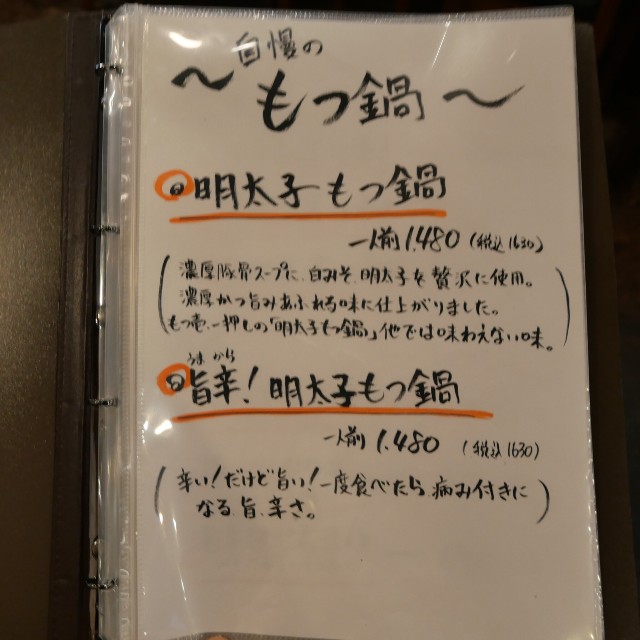 自慢の
〜もつ鍋〜
明太子もつ鍋
一人前 1,480 (税込 1630)
濃厚豚骨スープに、白みそ、明太子を贅沢に使用。
濃厚かつ旨みあふれる味に仕上がりました。
もつ壱、一押しの「明太子もつ鍋」他では味わえない味。
うま から
旨辛!明太子もつ鍋
一人前 1,480 (税込 1630)
(辛い!だけど旨い!一度食べたら、病み付きに
なる旨、辛さ。)